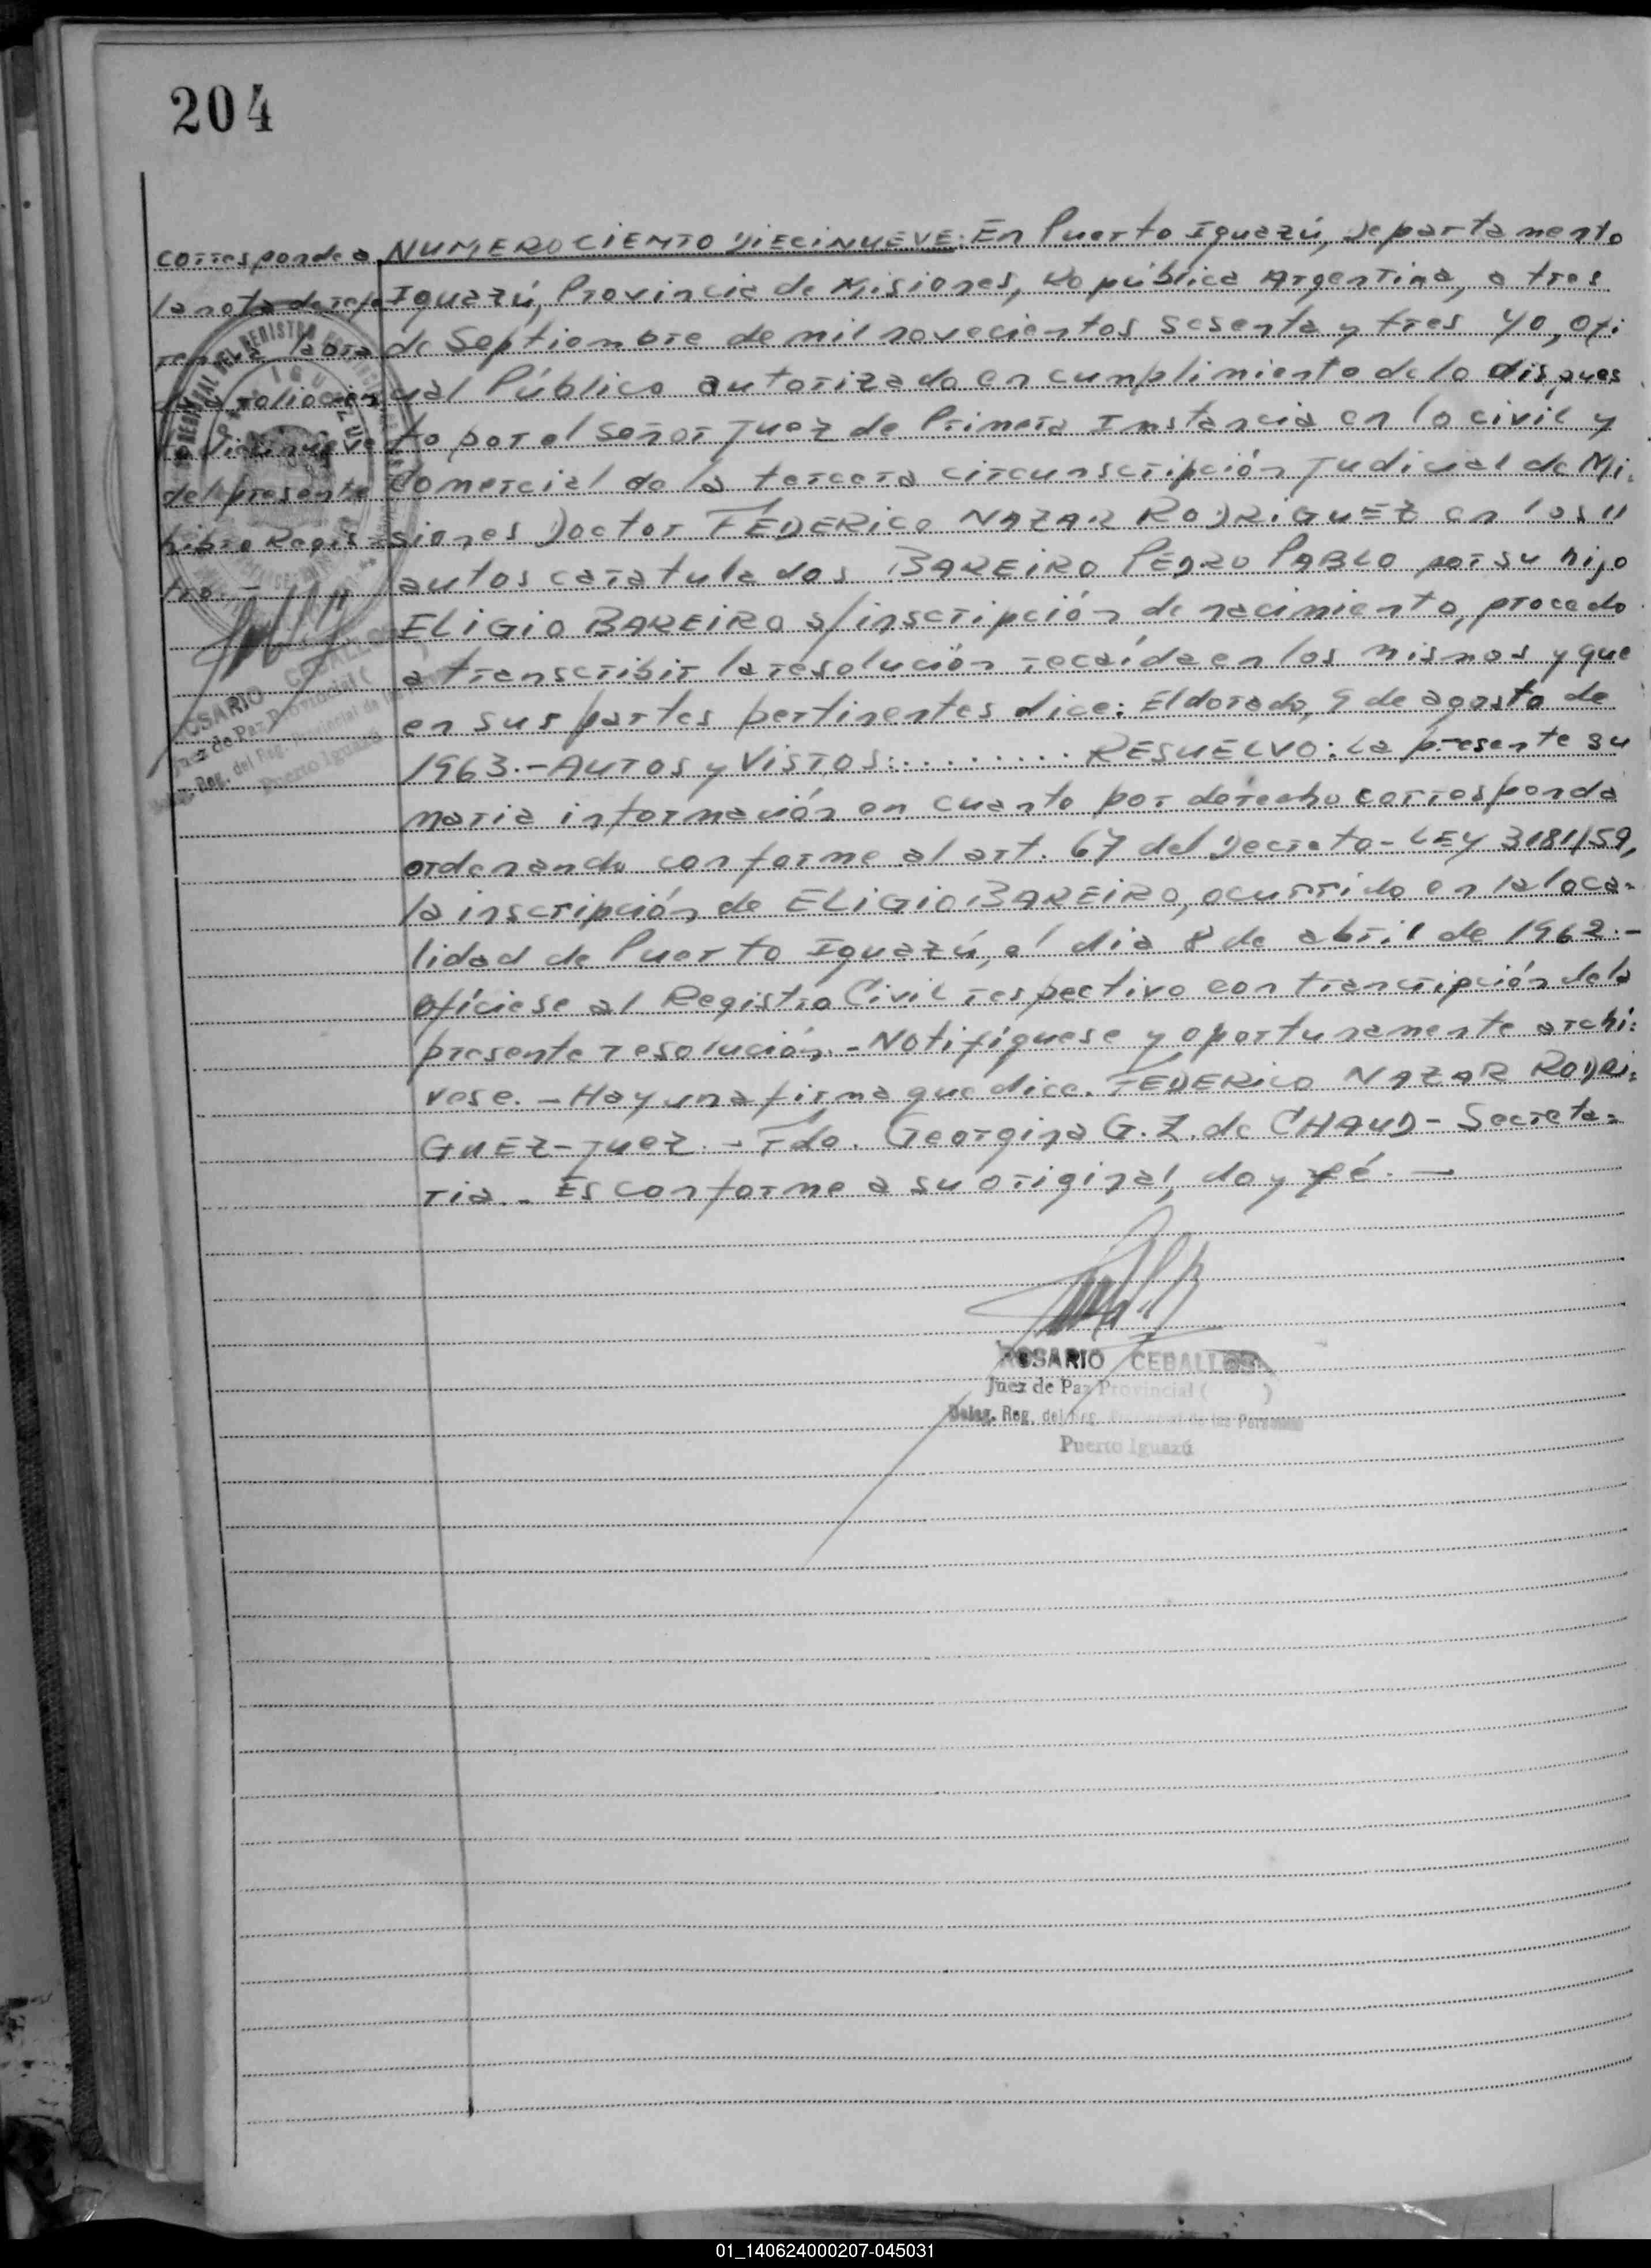 204
corresponde a
la nota de refe
rencia labra
folio cien
to diecinueve
del presente
hibro Regis=
tro. -
NUMERO CIENTO DIECINUEVE: En Puerto Iguazú, Departamento
Iguazú, Provincia de Misiones, República Argentina, a tres
de Septiembre de mil novecientos sesenta y tres yo, ofi
cial Público autorizado en cumplimiento de lo dispues
to por el señor Juez de Primera Instancia en lo civil y
Comercial de la tercera circunscripción Judicial de Mi=
siones Doctor FEDERICO NAZAR RODRIGUEZ en los "
autos caratulados BAREIRO PEDRO PABLO por su hijo
ELIGIO BAREIRO s/inscripción de nacimiento, procedo
a transcribir la resolución recaída en los mismos y que
en sus partes pertinentes dice: Eldorado, 9 de agosto de
1963.- AUTOS y VISTOS:......... RESUELVO: La presente su
maria información en cuanto por derecho corresponda
ordenando conforme al art. 67 del Decreto-LEY 3181/59,
la inscripción de ELIGIO BAREIRO, ocurrido en la loca=
lidad de Puerto Iguazú, el dia 8 de abril de 1962.-
Ofíciese al Registro Civil respectivo con trancripción de la
presente resolución.- Notifíquese y oportunamente archi=
vese.- Hay una firma que dice. FEDERICO NAZAR RODRI=
GUEZ-Juez.- Fdo. Georgina G.Z. de CHAUD- Secreta=
ria.- Es conforme a su original, doy fé.-
ROSARIO CEBALLOS
Juez de Paz Provincial ( )
Deleg. Reg. del Reg. Provincial de las Personas
Puerto Iguazú
OSARIO CEBALLOS
Juez de Paz Provincial (
Reg. del Reg. Provincial de las
Puerto Iguazú
01_140624000207-045031